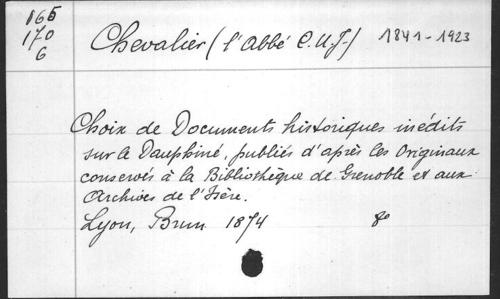 165
170
6
Chevalier (l'Abbé C.U.J.) 1841-1923
Choix de Documents historiques inédits
sur le Dauphiné, publiés d'après les Originaux
conservés à la Bibliothèque de Grenoble et aux
Archives de l'Isère.
Lyon, Brun 1874 8°